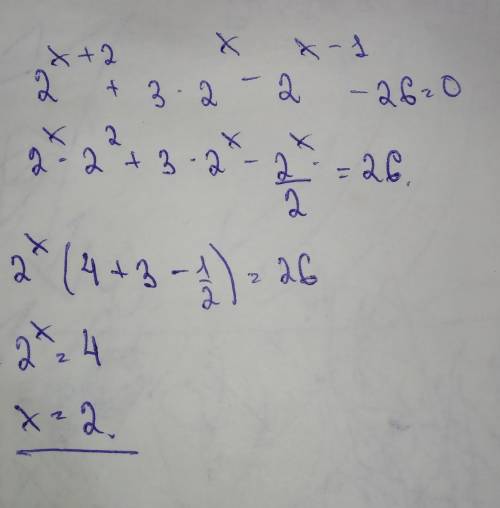 2^{x+2} + 3 · 2^x - 2^{x-1} - 26 = 0
2^x · 2^2 + 3 · 2^x - \frac{2^x}{2} = 26.
2^x (4 + 3 - \frac{1}{2}) = 26
2^x = 4
x = 2.